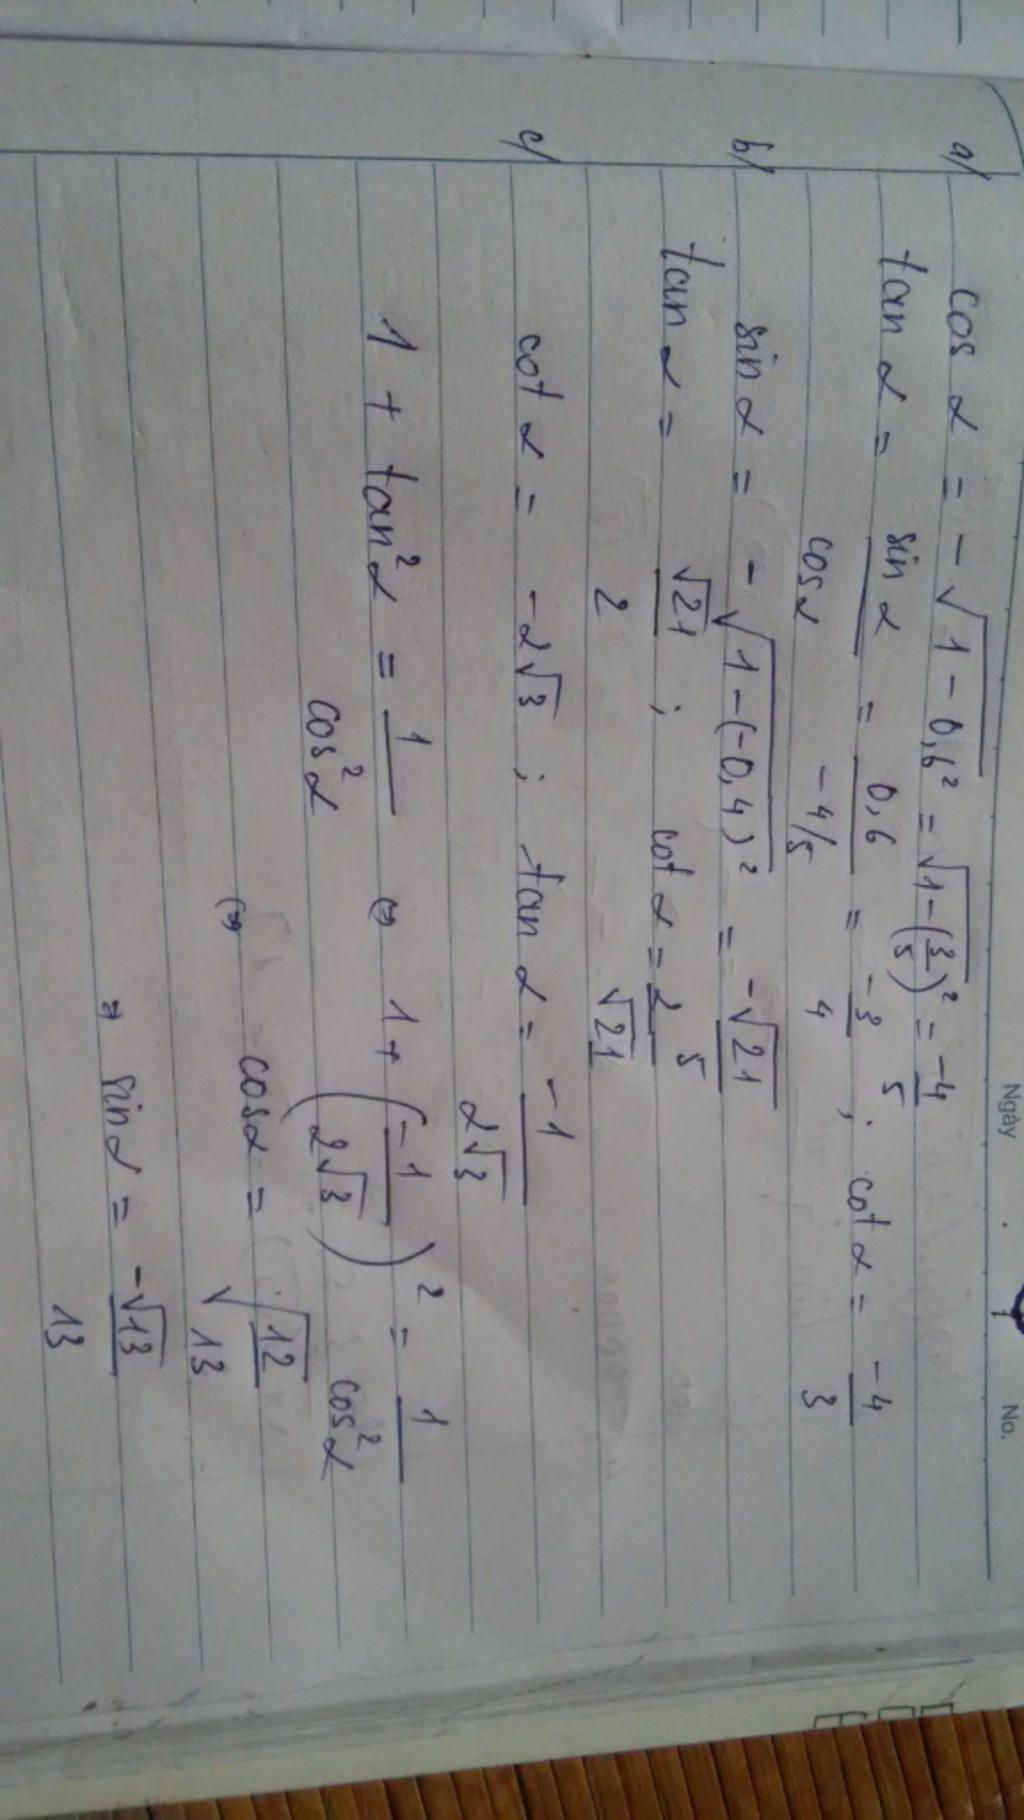 Ngày . No.
a/ cos α = -√(1 - 0,6²) = √(1-(3/5)²) = -4/5
tan α = sin α / cos α = 0,6 / -4/5 = -3/4 , cot α = -4/3
b/ sin α = -√(1-(-0,4)²) = -√21/5
tan α = √21/2 ; cot α = 2/√21
c/ cot α = -2√3 ; tan α = -1/2√3
1 + tan²α = 1/cos²α ⇔ 1+ (-1/2√3)² = 1/cos²α
⇔ cos α = √(12/13)
⇒ sin α = -√13/13